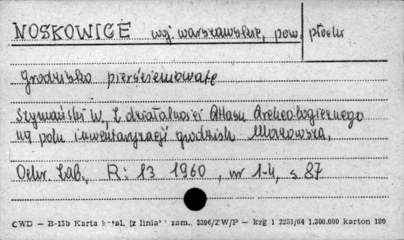 NOSKOWICE woj. warszawskie, pow. płocki
Grodzisko pierścieniowate
Szymański W., Z działalności Atlasu Archeologicznego
na polu inwentaryzacji grodzisk Mazowsza,
Ochr. Zab., R: 13 1960, nr 1-4, s. 87
CWD — B-15b Karta katal. (z linia) zam. 2396/ZW/P — krg 1 2251/64 1.500.000 karton 180